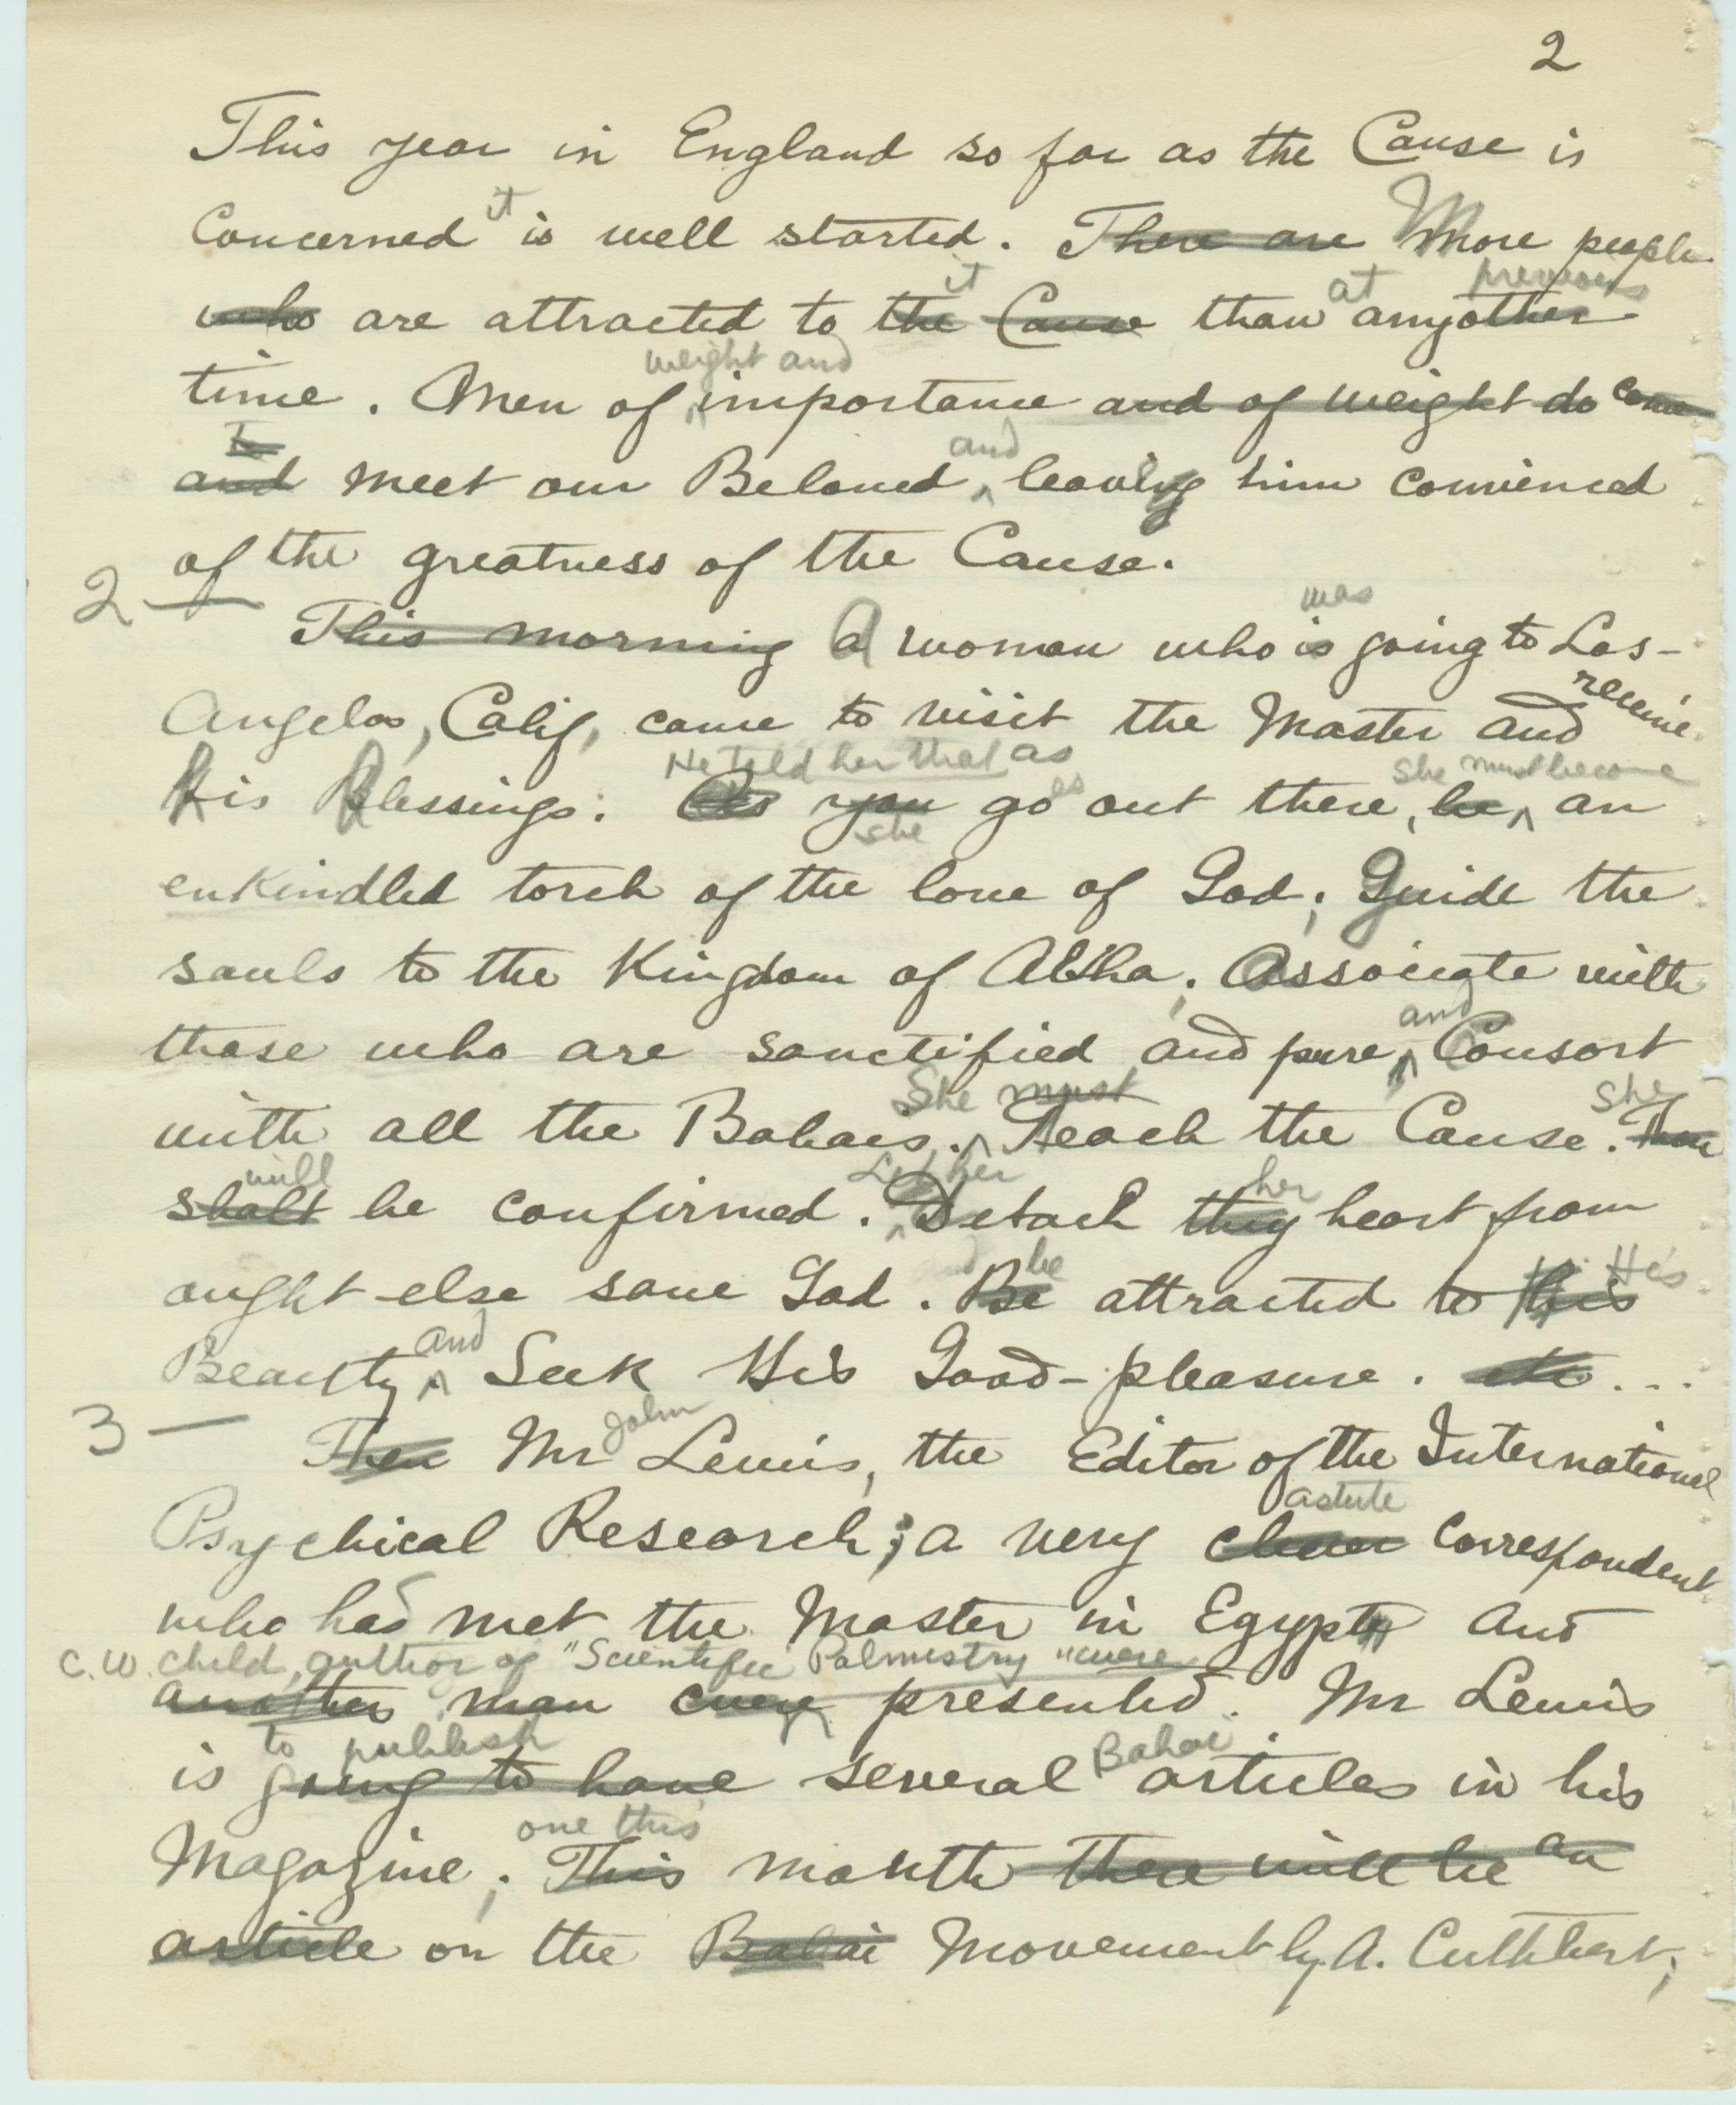 2
This year in England so far as the Cause is
it
Concerned is well started. There are More people
it at previous
who are attracted to the Cause than any other
weight and
time. Men of importance and of weight do come
to and
and meet our Beloved, leaving him convinced
of the greatness of the Cause.
2 —
was
This morning A woman who is going to Los-
Angelos, Calif, came to visit the Master and receive
He told her that as as she must become
His Blessings. As you go out there, be an
she
enkindled torch of the love of God; Guide the
souls to the Kingdom of Abha; Associate with
and
those who are sanctified and pure, Consort
She must she
with all the Bahais. Teach the Cause. Thou
will Let her her
shalt be confirmed. Detach thy heart from
be His
aught else save God. Be attracted to his
and
Beauty, Seek His Good-pleasure. etc...
3 —
John
Then Mr Lewis, the Editor of the International
astute
Psychical Research; a very clever Correspondent
who had met the Master in Egypt and
C.W. Child, author of "Scientific Palmistry" were
another man presented. Mr Lewis
to publish Bahai
is going to have several articles in his
one this
Magazine; This month there will be an
article on the Bahai Movement by A. Cuthbert;